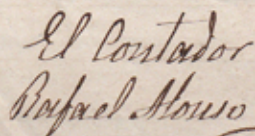 El Contador
Rafael Alonso